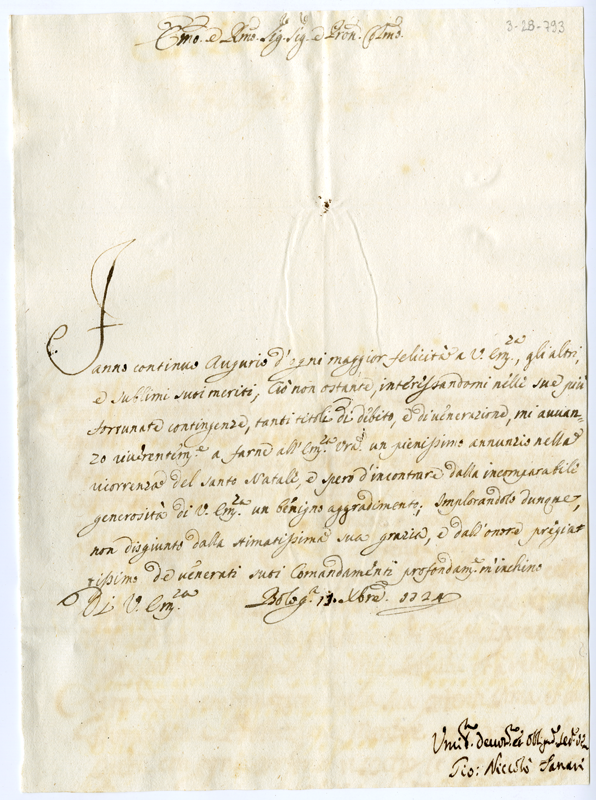 3-28-793
Emo. e Rmo. Sig. Sig. e Pron. Colmo.
Fanno continuo Augurio d'ogni maggior felicità a V. Em.za, gli altri,
e sublimi suoi meriti; Ciò non ostante, interessandomi nelle sue più
fortunate contingenze, tanti titoli di debito, e di venerazione, mi avvan-
zo riverentem.e a farne all' Em.za Vra. un pienissimo annunzio nella
ricorrenza del Santo Natale, e spero d'incontrare dalla incomparabile
generosità di V. Em.za un benigno aggradimento; Implorandolo dunque,
non disgiunto dalla stimatissima sua grazia, e dall'onore pregiat
tissimo de venerati suoi Comandamenti profondam.e m'inchino
Di V. Em.za Bolog.a Xbre.
Umil.mo
Gio: Niccolò Tanari